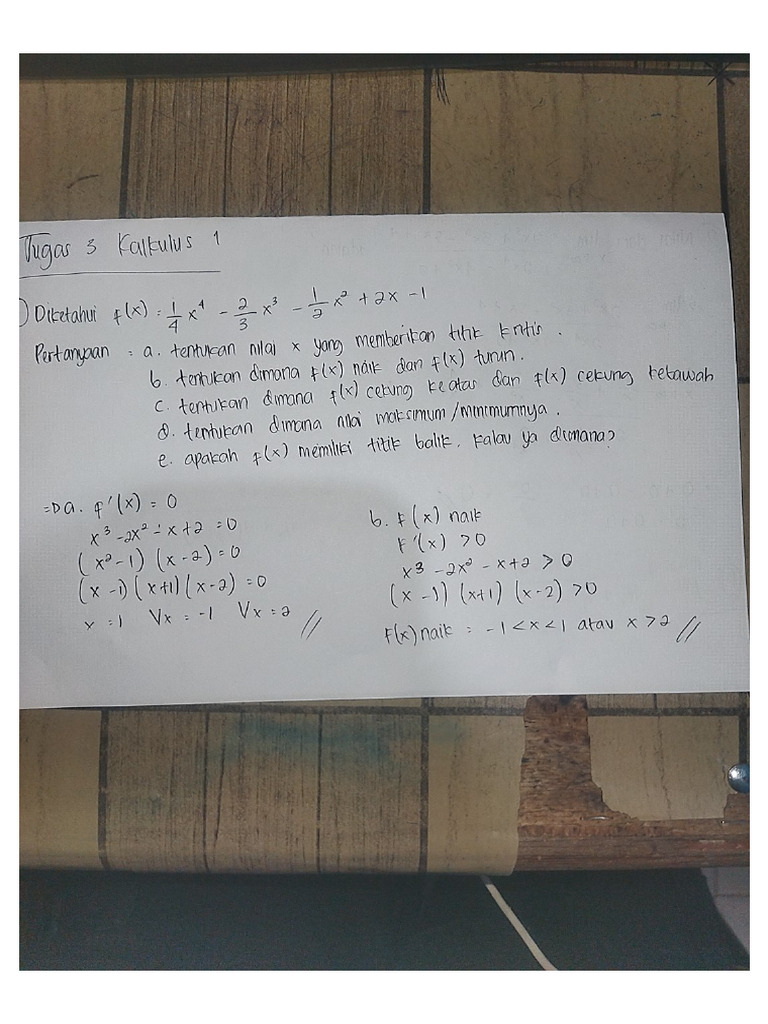 Tugas 3 Kalkulus 1
) Diketahui f(x) = 1/4 x⁴ - 2/3 x³ - 1/2 x² + 2x - 1
Pertanyaan = a. tentukan nilai x yang memberikan titik kritis.
b. tentukan dimana f(x) naik dan f(x) turun.
c. tentukan dimana f(x) cekung keatas dan f(x) cekung ketawah
d. tentukan dimana nilai maksimum/minimumnya.
e. apakah f(x) memiliki titik balik, kalau ya dimana?
=D a. f'(x) = 0
x³ - 2x² - x + 2 = 0
(x² - 1) (x - 2) = 0
(x - 1) (x + 1) (x - 2) = 0
x = 1 Vx = -1 Vx = 2 //
b. f(x) naik
f'(x) > 0
x³ - 2x² - x + 2 > 0
(x - 1) (x + 1) (x - 2) > 0
f(x) naik = -1 < x < 1 atau x > 2 //